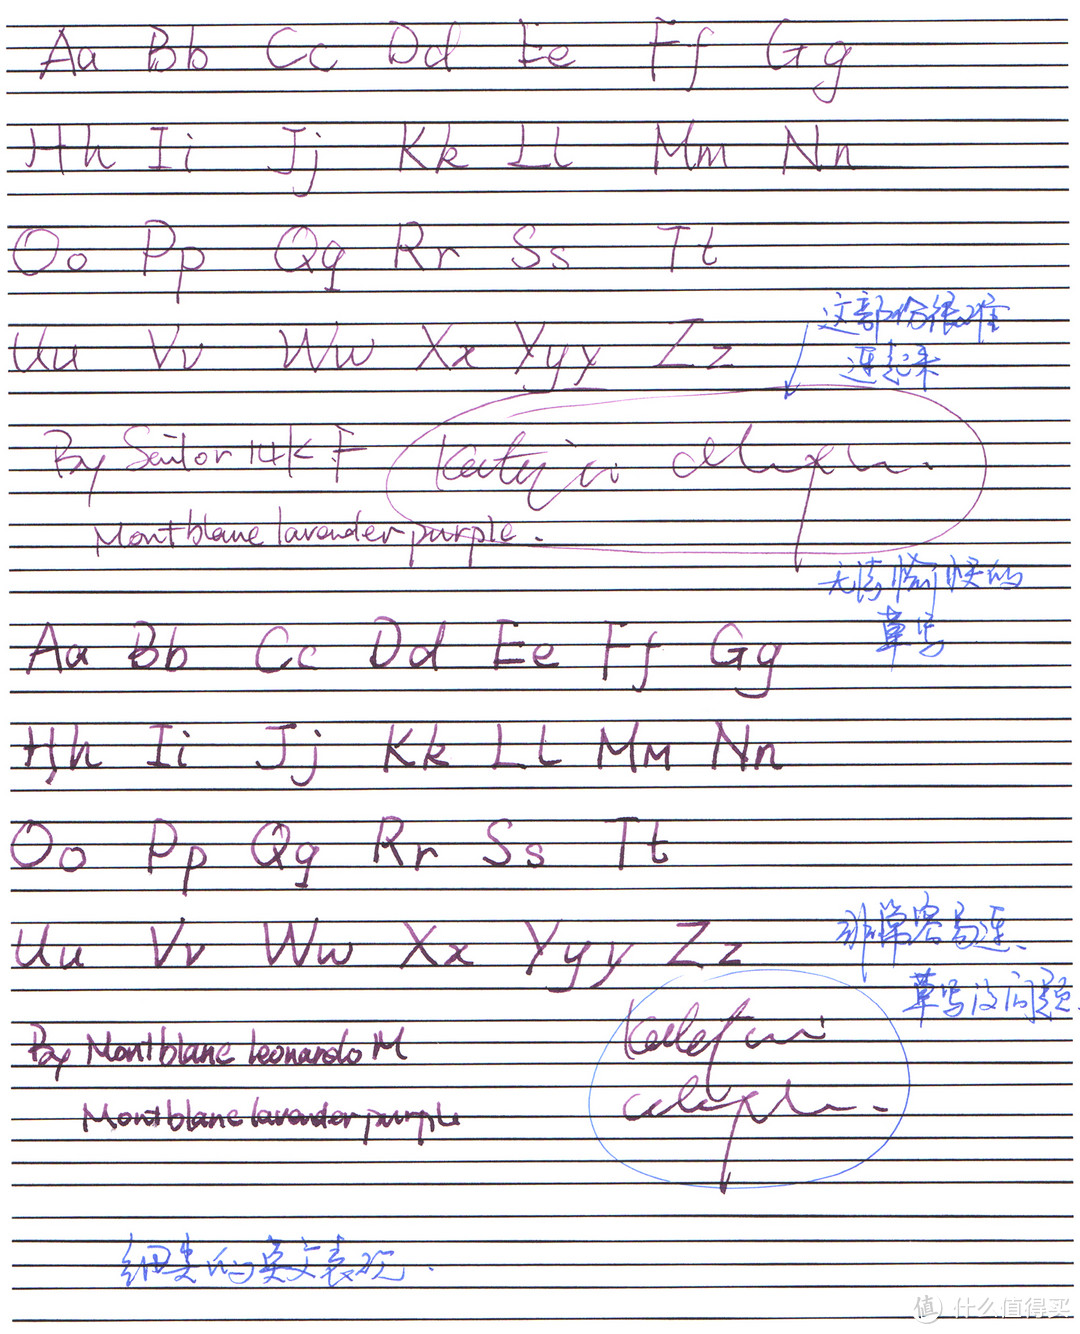 Aa Bb Cc Dd Ee Ff Gg
Hh Ii Jj Kk Ll Mm Nn
Oo Pp Qq Rr Ss Tt
Uu Vv Ww Xx Yyy Zz
这部份很难
连起来
By Sailor 14K F
Montblanc lavender purple.
无法愉快的
草写
Aa Bb Cc Dd Ee Ff Gg
Hh Ii Jj Kk Ll Mm Nn
Oo Pp Qq Rr Ss Tt
Uu Vv Ww Xx Yyy Zz
非常容易连、
草写没问题.
By Montblanc leonardo M
Montblanc lavender purple
细尖的英文表现.
值 什么值得买